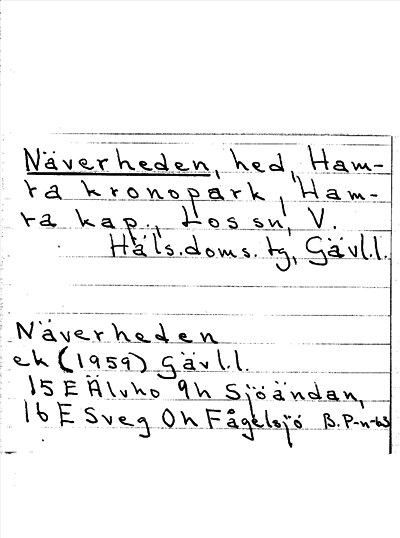 Näverheden, hed, Ham-
ra kronopark, Ham-
ra kap., Los sn, V.
Häls.doms. tg, Gävl.l.
Näverheden
ek (1959) Gävl.l.
15 E Älvho 9h Sjöändan,
16 E Sveg 0h Fågelsjö B.P-n-63